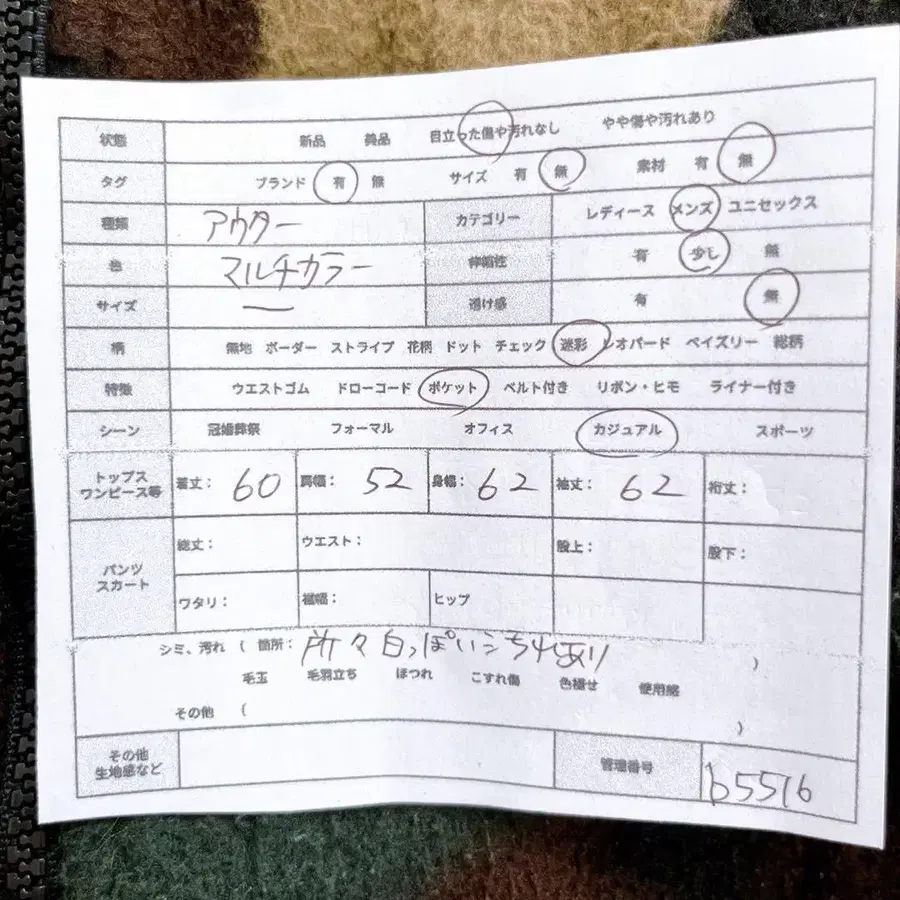 状態 新品 美品 目立った傷や汚れなし やや傷や汚れあり
タグ ブランド 有 無 サイズ 有 無 素材 有 無
種類 アウター カテゴリー レディース メンズ ユニセックス
色 マルチカラー 伸縮性 有 少し 無
サイズ ー 透け感 有 無
柄 無地 ボーダー ストライプ 花柄 ドット チェック 迷彩 レオパード ペイズリー 総柄
特徴 ウエストゴム ドローコード ポケット ベルト付き リボン・ヒモ ライナー付き
シーン 冠婚葬祭 フォーマル オフィス カジュアル スポーツ
トップス
ワンピース等 着丈: 60 肩幅: 52 身幅: 62 袖丈: 62 裄丈:
パンツ
スカート 総丈: ウエスト: 股上: 股下:
ワタリ: 裾幅: ヒップ
シミ、汚れ ( 箇所: 所々白っぽいよごれあり )
毛玉 毛羽立ち ほつれ こすれ傷 色褪せ 使用感
その他 ( )
その他
生地感など 管理番号 b5516